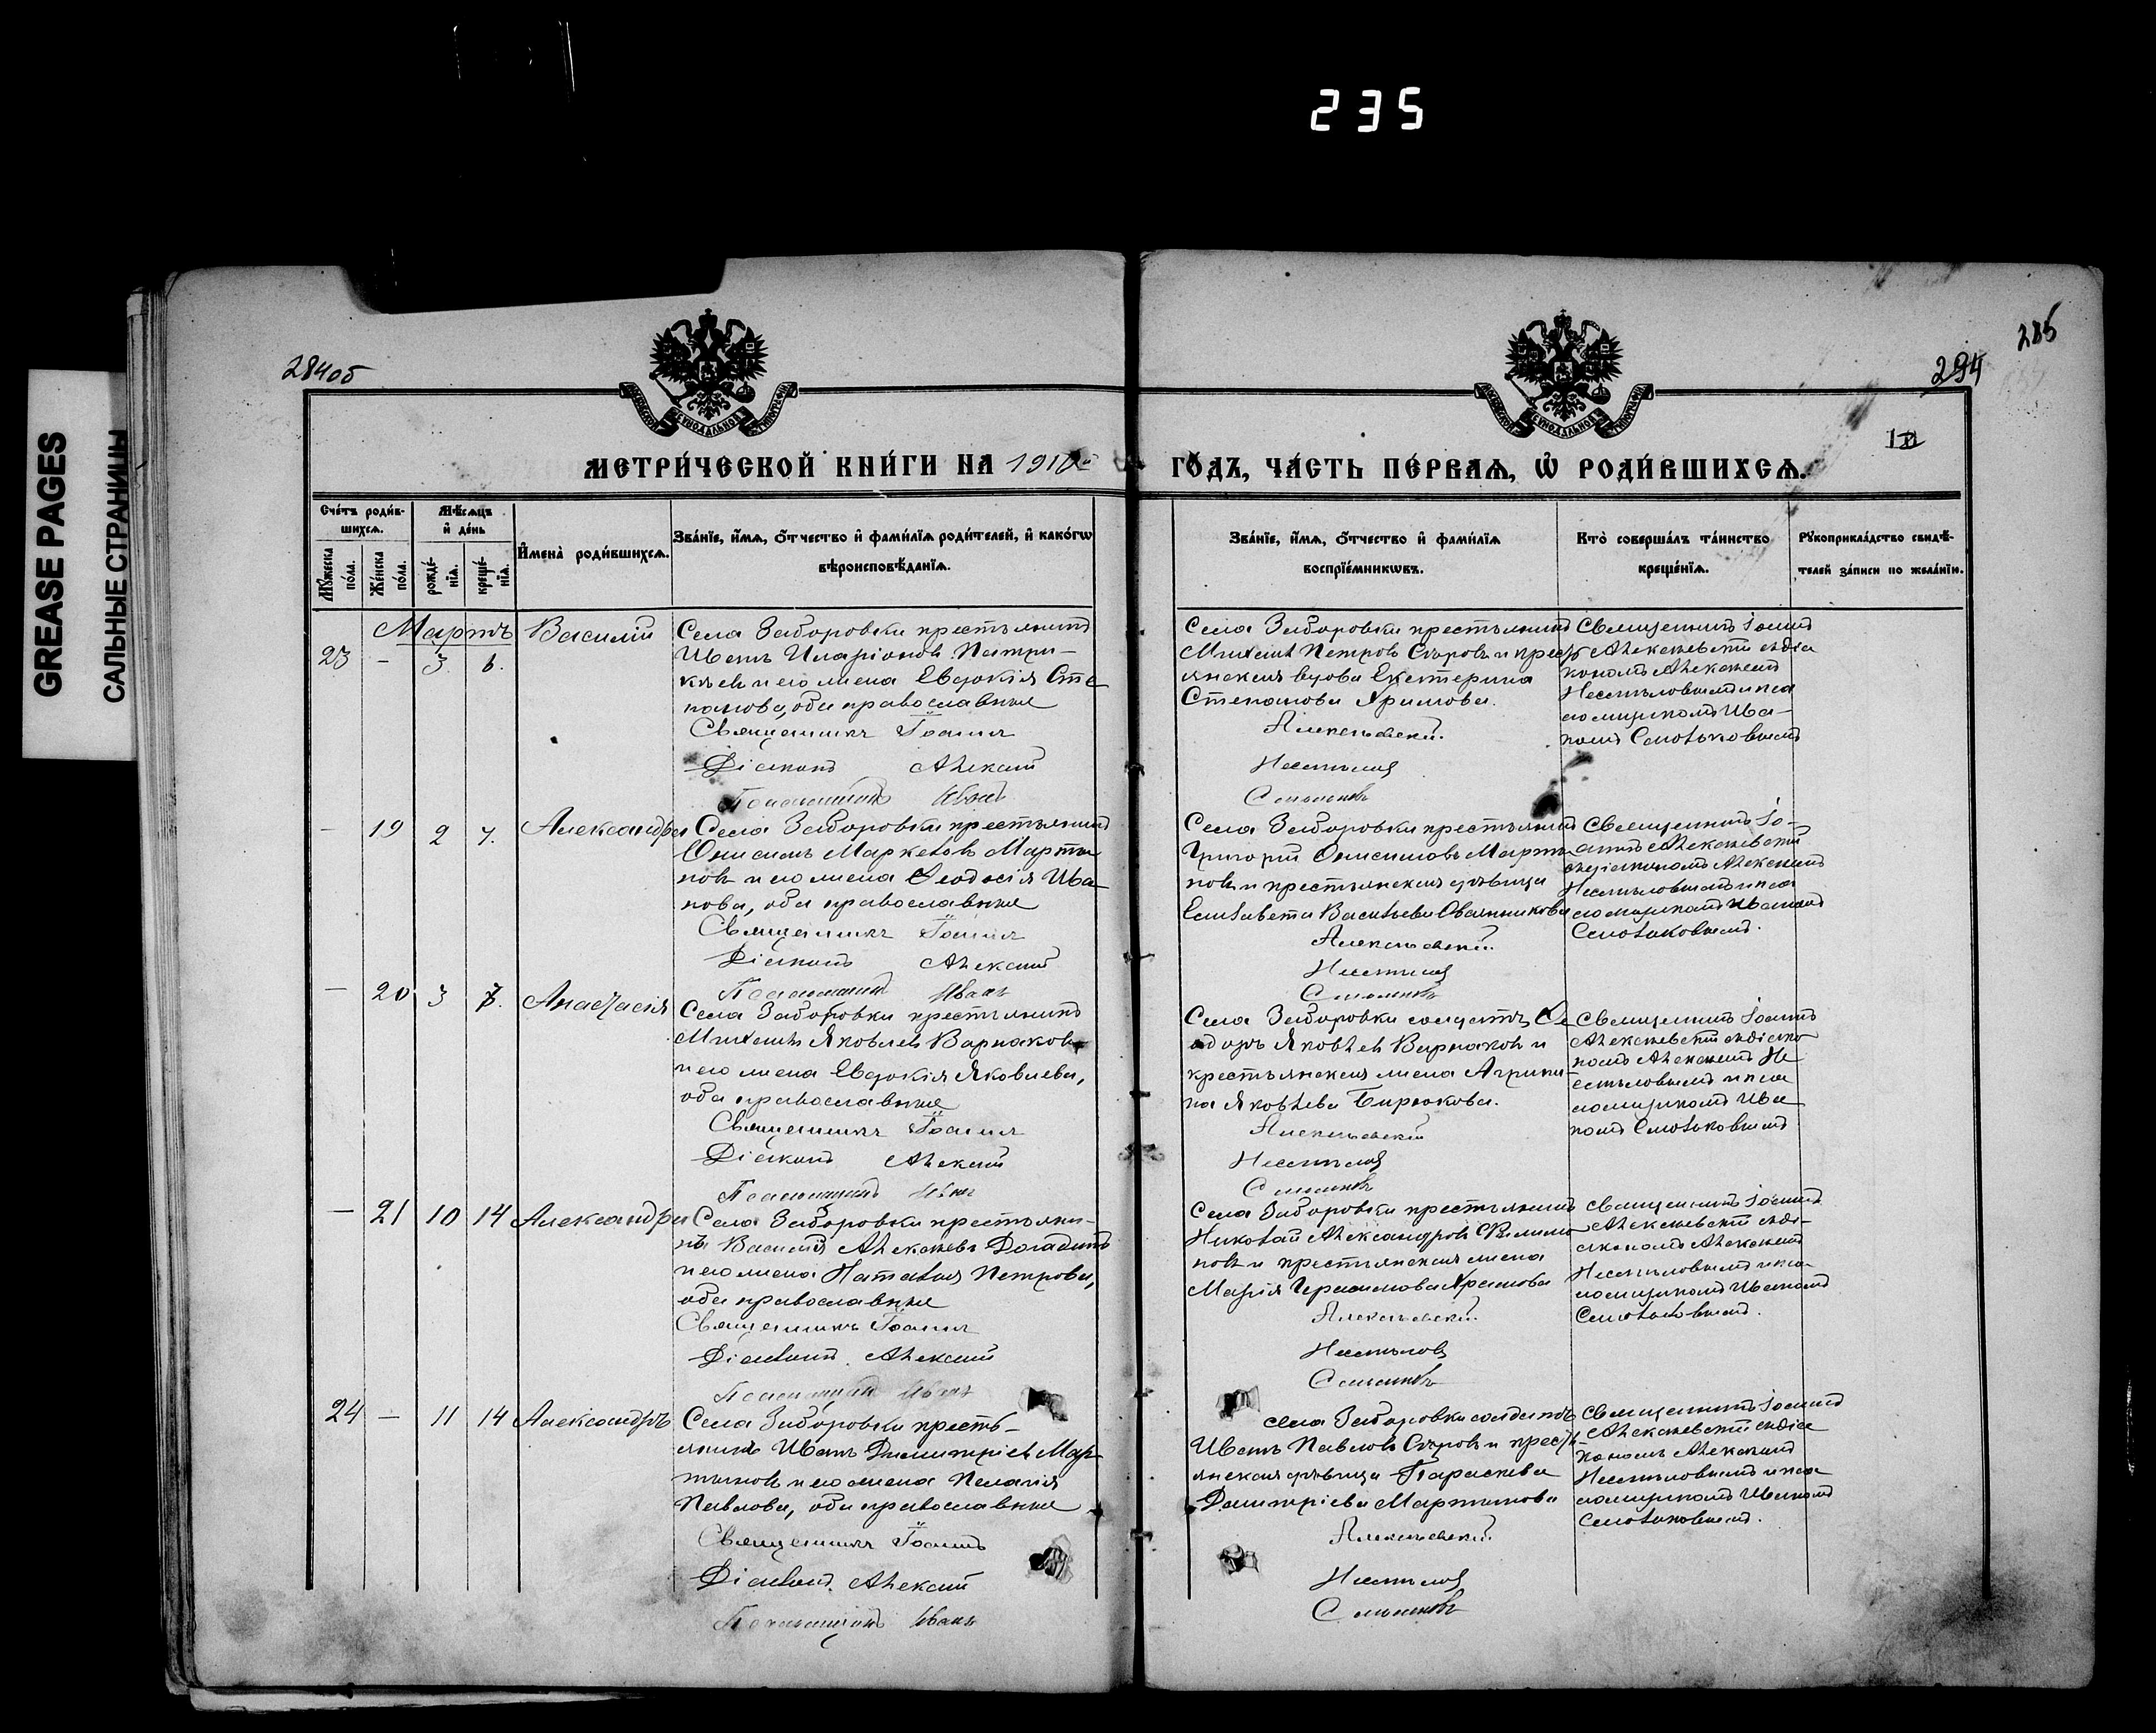 235
GREASE PAGES
САЛЬНЫЕ СТРАНИЦЫ
284об
285
294
МЕТРИ́ЧЕСКОЙ КНИ́ГИ НА 1910й ГО́ДЪ, ЧА́СТЬ ПЕ́РВАѦ, Ѡ҆ РОДИ́ВШИХСѦ.
Сче́тъ роди́в-
шихсѧ.
Мѣ́сѧцъ
и҆ де́нь
Мꙋ́жеска
по́ла.
Же́нска
по́ла.
рожде́-
нїѧ.
креще́-
нїѧ.
И҆мена̀ роди́вшихсѧ.
Зва́нїе, и҆́мѧ, ѻ҆́тчество и҆ фами́лїѧ роди́телей, и҆ како́гѡ
вѣроисповѣ́данїѧ.
Зва́нїе, и҆́мѧ, ѻ҆́тчество и҆ фами́лїѧ
воспрїе́мникѡвъ.
Кто̀ соверша́лъ та́инство
креще́нїѧ.
Рꙋкоприкла́дство свидѣ́-
телей за́писи по жела́нїю.
Мартъ
23 - 3. 6.
Василій
Села Заборовки крестьянинъ
Иванъ Иларіоновъ Патри-
кѣевъ и его жена Евдокія Сте
панова, оба православные
Священникъ Іоаннъ
Діаконъ Алексій
Псаломщикъ Иванъ
Села Заборовки крестьянинъ
Михаилъ Петровъ Сыровъ и кресть
янская вдова Екатерина
Степанова Храмова.
Алексѣевскій.
Несмѣловъ
Смольковъ
Священникъ Іоаннъ
Алексѣевскій съ діа
кономъ Алексіемъ
Несмѣловымъ и пса
ломщикомъ Ива-
номъ Смольковымъ
- 19 2 7.
Александра
Села Заборовки крестьянинъ
Онисимъ Маркеловъ Марты
новъ и его жена Ѳеодосія Ива-
нова, оба православные
Священникъ Іоаннъ
Діаконъ Алексій
Псаломщикъ Иванъ
Села Заборовки крестьянинъ
Григорій Онисимовъ Марты
новъ и крестьянская дѣвица
Елизавета Васильева Овчинникова
Алексѣевскій.
Несмѣловъ
Смольковъ
Священникъ Іо-
аннъ Алексѣевскій
съ діакономъ Алексіемъ
Несмѣловымъ и пса
ломщикомъ Иваномъ
Смольковымъ.
- 20 3 7.
Анастасія
Села Заборовки крестьянинъ
Михаилъ Яковлевъ Варнаковъ
и его жена Евдокія Яковлева,
оба православные
Священникъ Іоаннъ
Діаконъ Алексій
Псаломщикъ Иванъ
Села Заборовки солдатъ Ѳе
одоръ Яковлевъ Варнаковъ и
крестьянская жена Агрипи-
на Яковлева Бирюкова.
Алексѣевскій
Несмѣловъ
Смольковъ
Священникъ Іоаннъ
Алексѣевскій съ діако
номъ Алексіемъ Не
смѣловымъ и пса
ломщикомъ Ива
номъ Смольковымъ
- 21 10 14
Александра
Села Заборовки крестьяни-
нъ Василій Алексѣевъ Догадинъ
и его жена Наталья Петрова,
оба православные
Священникъ Іоаннъ
Діаконъ Алексій
Псаломщикъ Иванъ
Села Заборовки крестьянинъ
Николай Александровъ Филимо
новъ и крестьянская жена
Марія Герасимова Храмова
Алексѣевскій.
Несмѣловъ
Смольковъ
Священникъ Іоаннъ
Алексѣевскій съ ді-
акономъ Алексіемъ
Несмѣловымъ и пса-
ломщикомъ Иваномъ
Смольковымъ.
24 - 11 14
Александръ
Села Заборовки кресть-
янинъ Иванъ Димитріевъ Мар-
тыновъ и его жена Пелагія
Павлова, оба православные
Священникъ Іоаннъ
Діаконъ Алексій
Псаломщикъ Иванъ
Села Заборовки солдатъ
Иванъ Павловъ Сыровъ и кресть
янская дѣвица Параскева
Димитріева Мартынова
Алексѣевскій.
Несмѣловъ
Смольковъ
Священникъ Іоаннъ
Алексѣевскій съ діа
кономъ Алексіемъ
Несмѣловымъ и пса-
ломщикомъ Иваномъ
Смольковымъ.